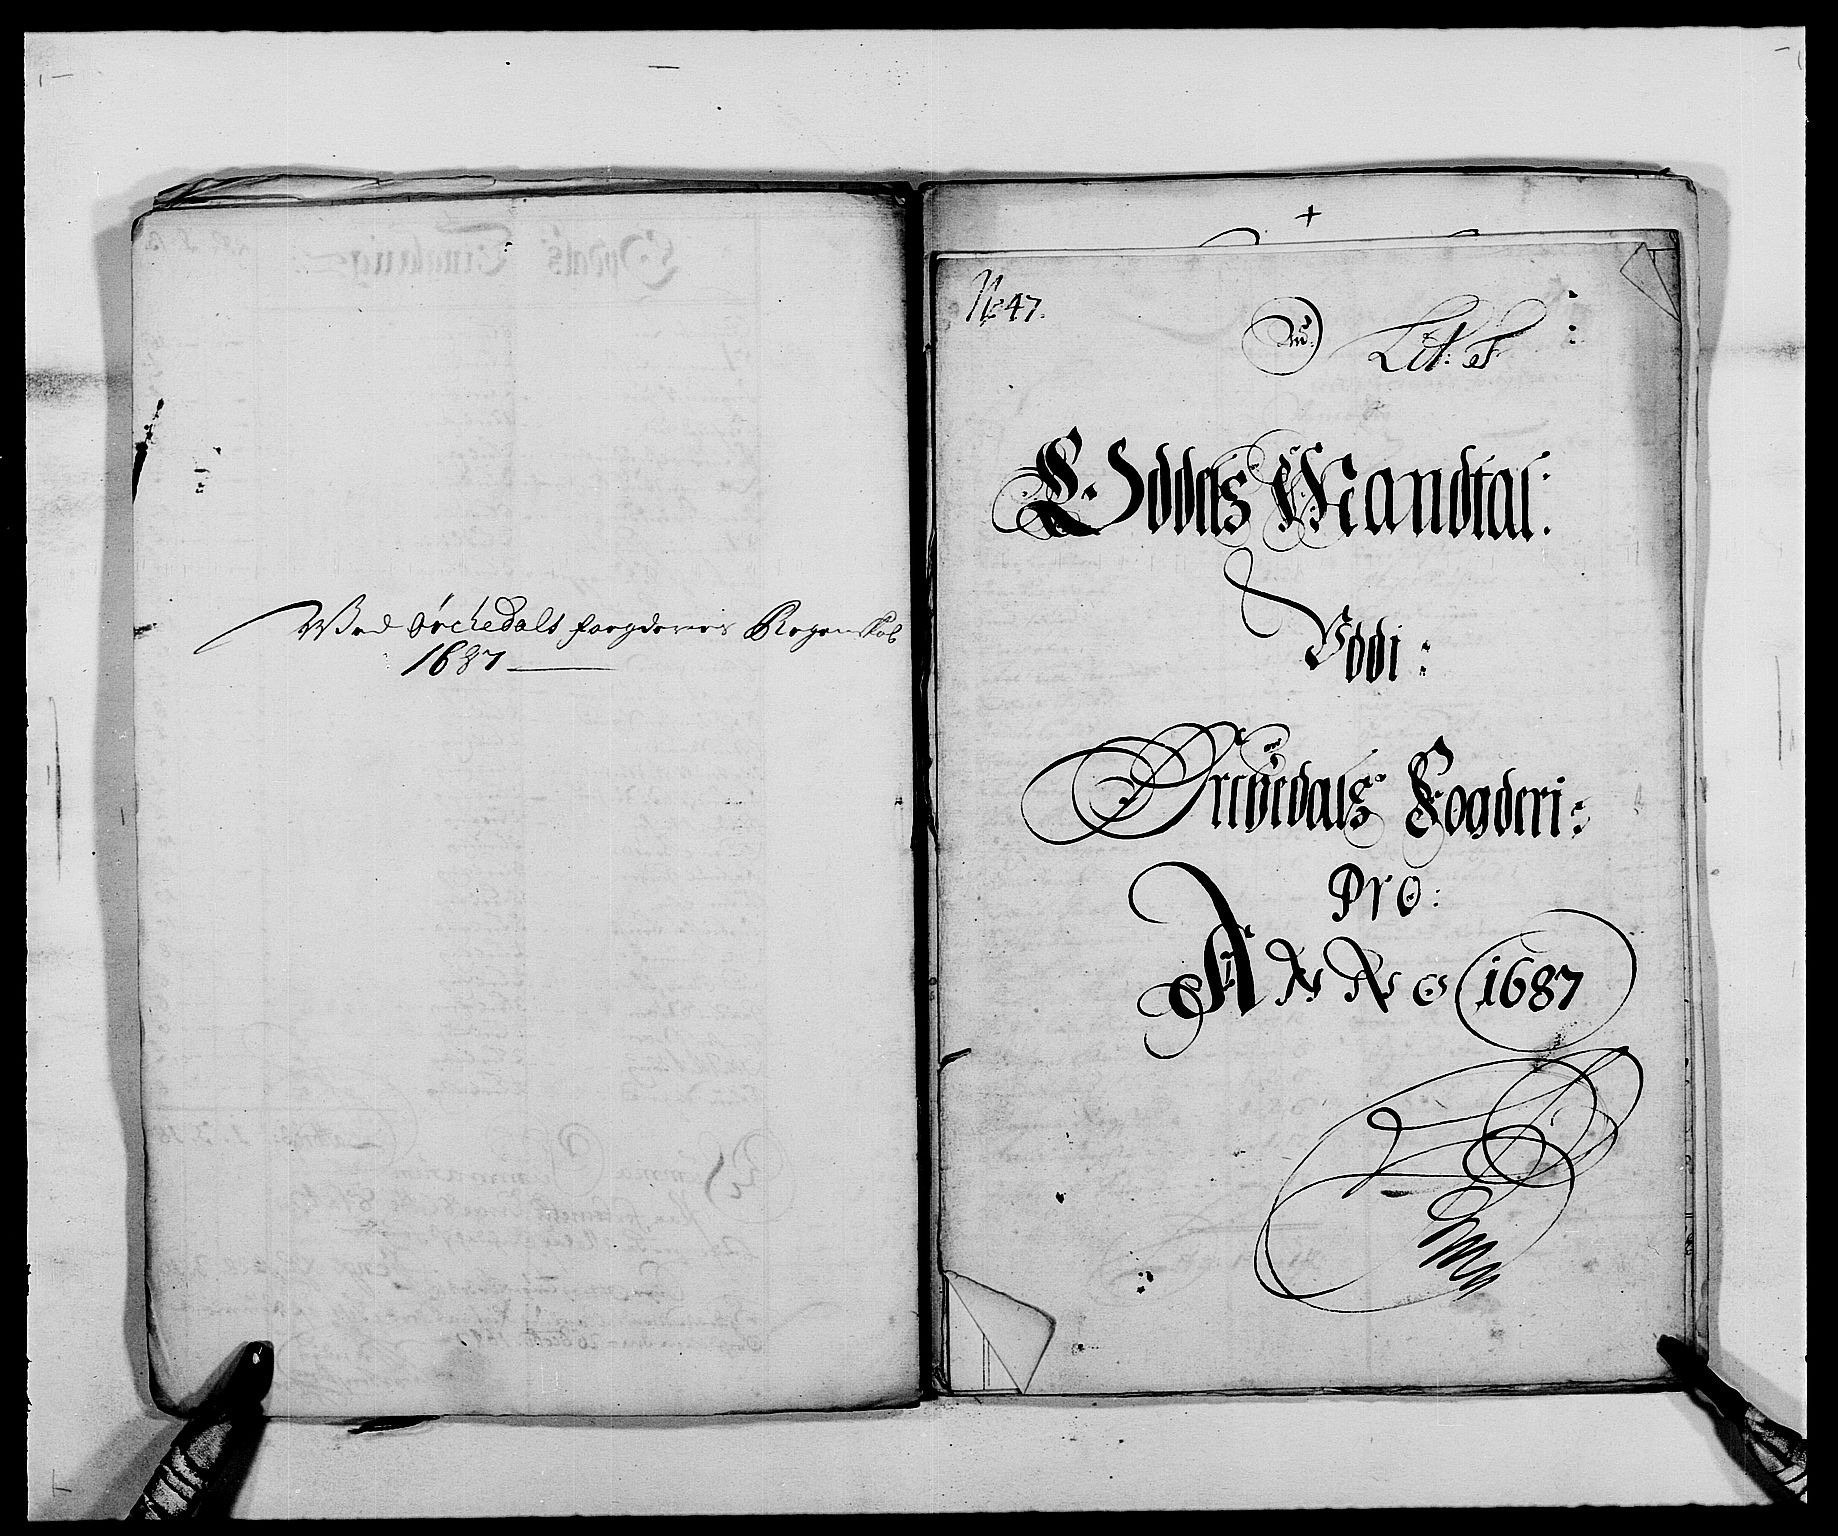 Wed Örchedals fougderies Regenskab
1687
No 47.
Lit: F
Oddels Mandtal:
Uddi:
Örchedals Fogderi:
Pro:
ANNO 1687